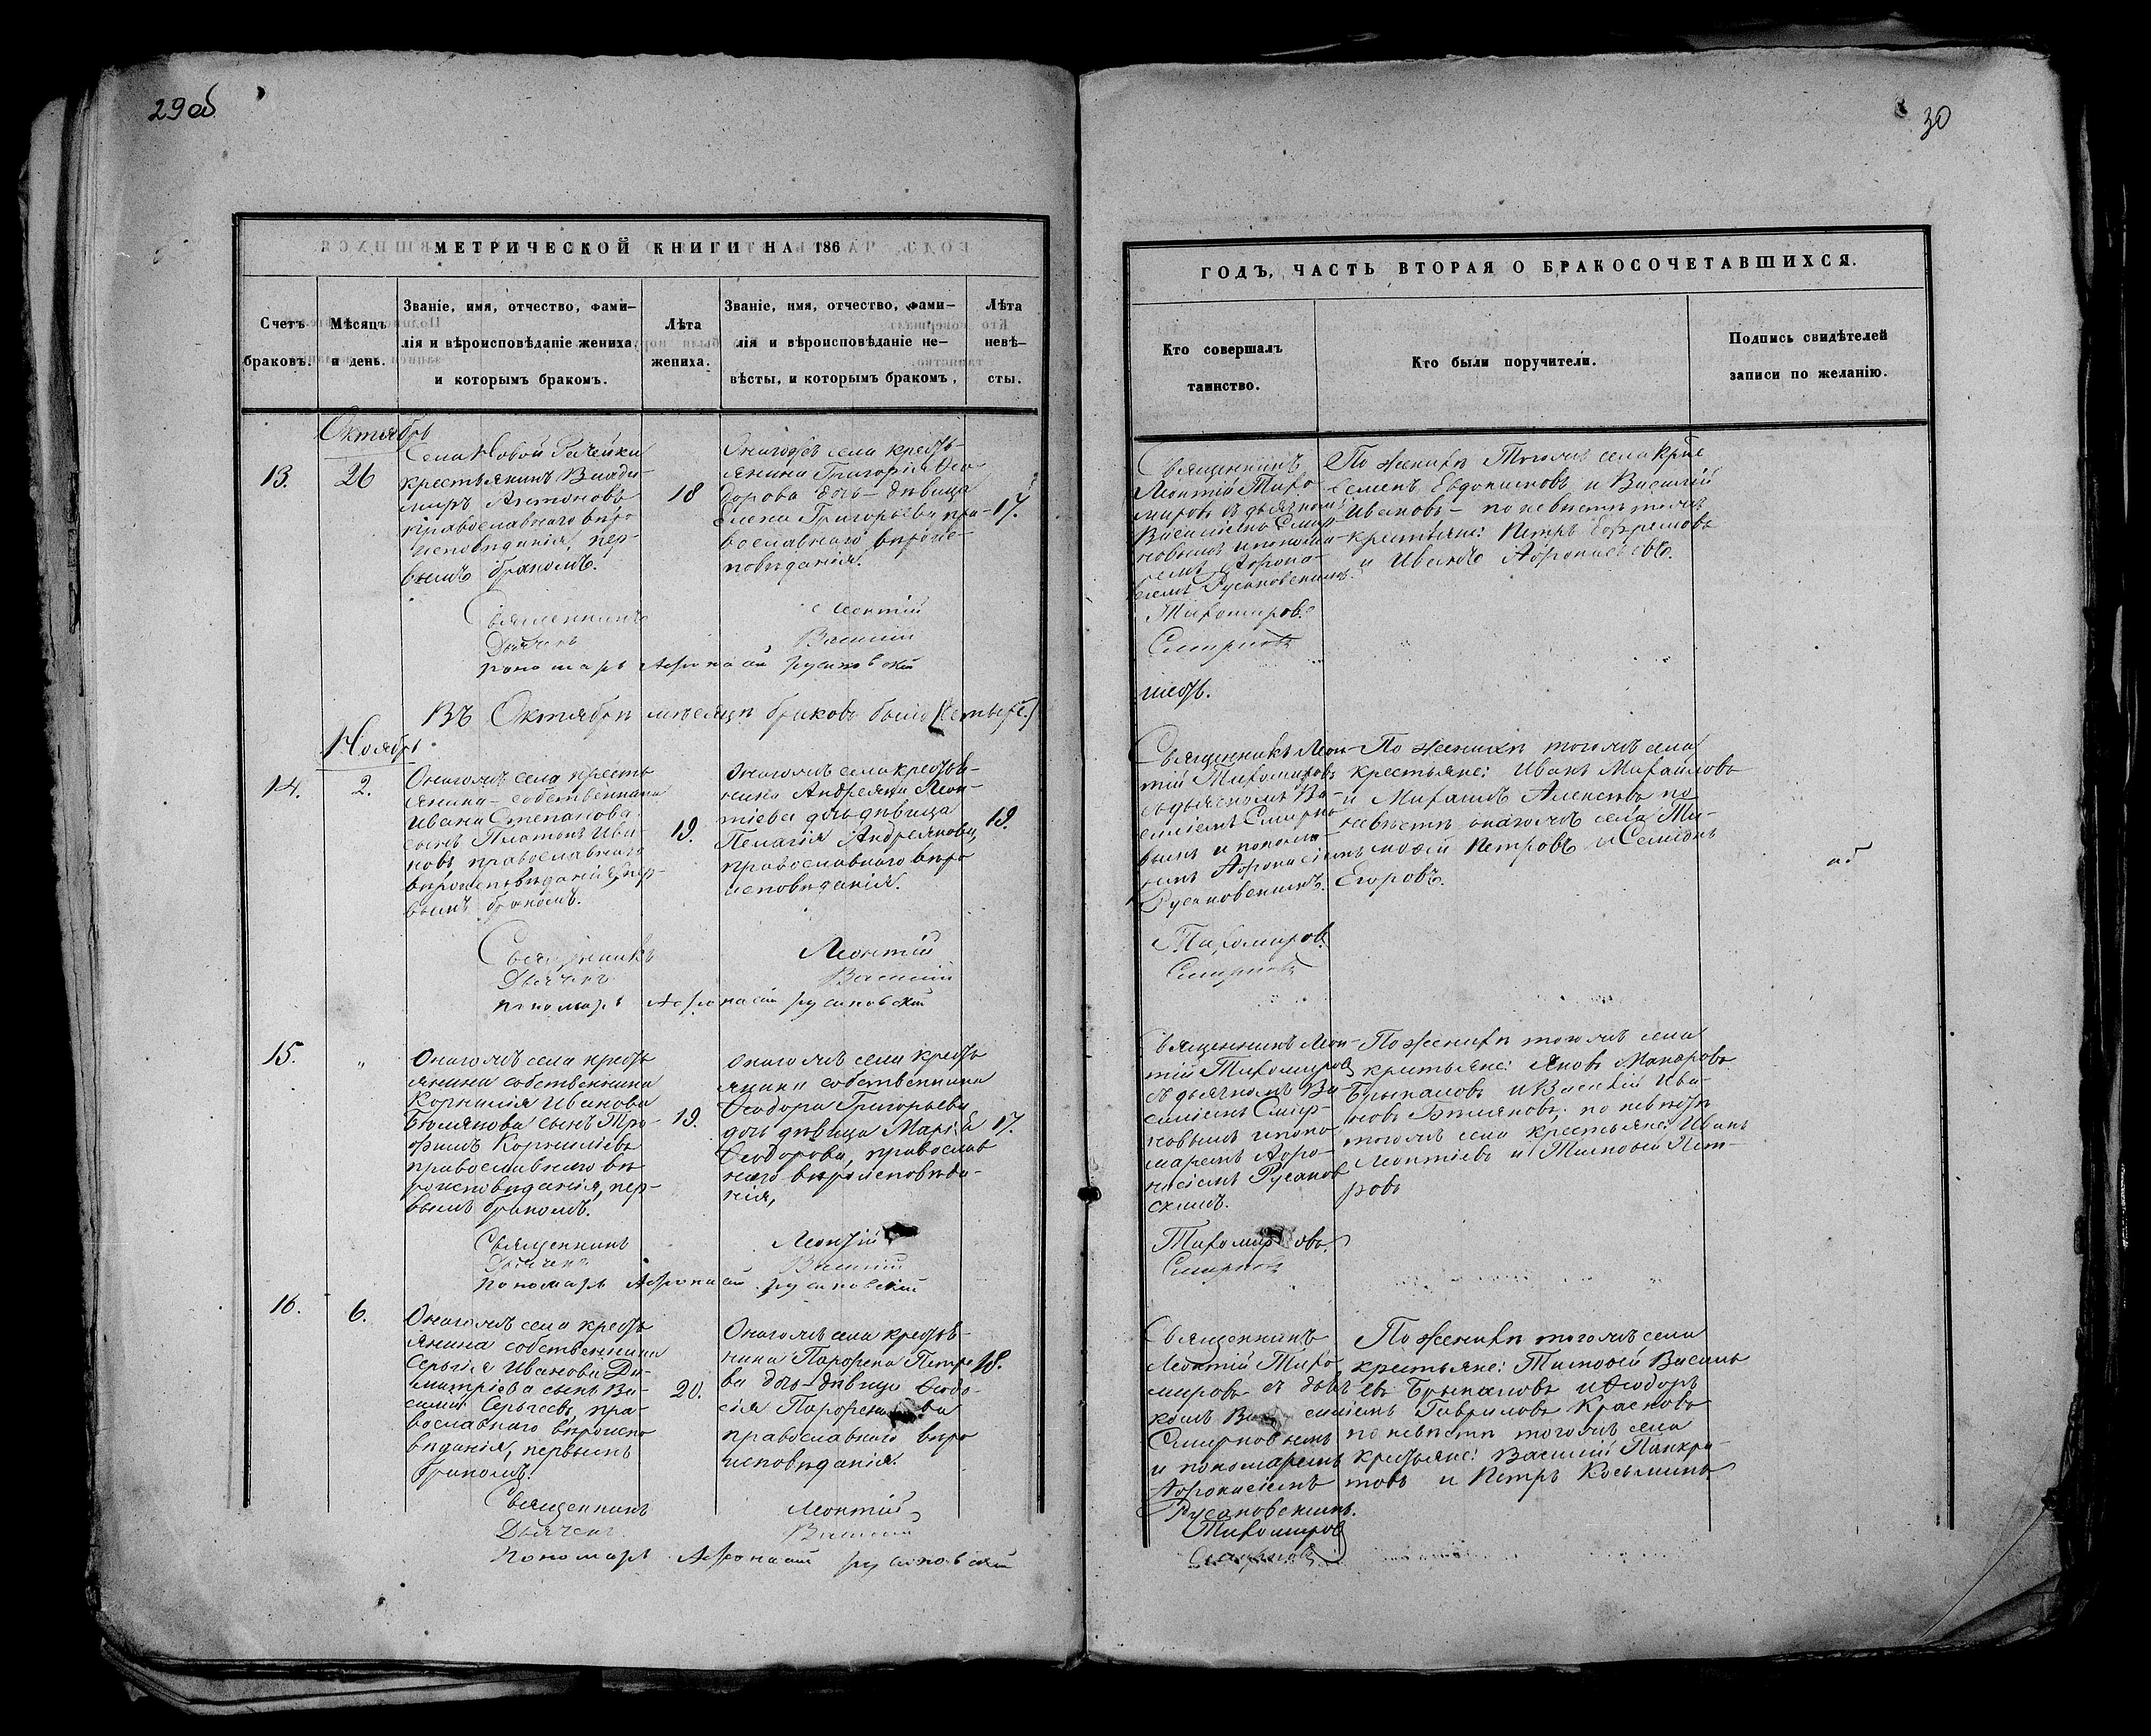 29об
МЕТРИЧЕСКОЙ КНИГИ НА 186
Счетъ браковъ.
Мѣсяцъ и день.
Званіе, имя, отчество, фами-
лія и вѣроисповѣданіе жениха
и которымъ бракомъ.
Лѣта жениха.
Званіе, имя, отчество, фами-
лія и вѣроисповѣданіе не-
вѣсты, и которымъ бракомъ,
Лѣта невѣ-
сты.
Октябрь
13.
26
Села Новой Рачейки
крестьянинъ Влади-
миръ Антоновъ
православнаго вѣро
исповѣданія, пер-
вымъ бракомъ.
18
Онагожъ села кресть-
янина Григорія Ѳео
дорова дочь-дѣвица
Елена Григорьева пра-
вославнаго вѣроис-
повѣданія.
17.
Священникъ Леонтій
Дьячекъ Василій
пономарь Афонасій русановскій
Въ Октябрѣ мѣсяцѣ браковъ было (четыре.)
Ноябрь
14.
2.
Онагожъ села кресть
янина-собственника
Ивана Степанова
сынъ Платонъ Ива-
новъ, православнаго
вѣроисповѣданія, пер-
вымъ бракомъ.
19.
Онагожъ села крестья-
нина Андреяна Леон-
тіева дочь-дѣвица
Пелагія Андреянова,
православнаго вѣро
исповѣданія.
19.
Священникъ Леонтій
Дьячекъ Василій
пономарь Афонасій русановскій
15.
"
Онагожъ села кресть
янина собственника
Корнилія Иванова
Белякова сынъ Тро-
фимъ Корниліевъ
православнаго вѣ
роисповѣданія, пер-
вымъ бракомъ.
19.
Онагожъ села кресть
янина собственника
Ѳеодора Григорьева
дочь дѣвица Марія
Ѳеодорова, православ
наго вѣроисповѣда-
нія,
17.
Священникъ Леонтій
Дьячекъ Василій
пономарь Афонасій русановскій
16.
6.
Онагожъ села кресть
янина собственника
Сергія Иванова Ди-
митріева сынъ Ва-
силій Сергѣевъ, пра-
вославнаго вѣроиспо
вѣданія, первымъ
бракомъ.
20.
Онагожъ села крестья-
нина Парфена Петро
ва дочь-дѣвица Ѳеодо-
сія Парфенова
православнаго вѣро
исповѣданія.
18.
Священникъ Леонтій
Дьячекъ Василій
пономарь Афонасій русановскій
30
ГОДЪ, ЧАСТЬ ВТОРАЯ О БРАКОСОЧЕТАВШИХСЯ.
Кто совершалъ
таинство.
Кто были поручители.
Подпись свидѣтелей
записи по желанію.
Священникъ
Леонтій Тихо
мировъ съ дьячкомъ
Василіемъ Смир-
новымъ и понома-
ремъ Афона-
сіемъ Русановскимъ.
По женихѣ Тогожъ села крѣс
Семенъ Евдокимовъ и Василій
Ивановъ - по невѣстѣ тогожъ
крестьяне: Петръ Ефремовъ
и Иванъ Афонасьевъ.
Тихомировъ
Смирновъ
шесть.
Священникъ Леон-
тій Тихомировъ
съ дьячкомъ Ва-
силіемъ Смирно
вымъ и понома-
ремъ Афонасіемъ
Русановскимъ.
По женихѣ тогожъ села
крестьяне: Иванъ Михайловъ
и Михаилъ Алексѣевъ по
невѣстѣ онагожъ села Ти-
мофей Петровъ и Семіонъ
Егоровъ.
Тихомировъ
Смирновъ
Священникъ Леон-
тій Тихомировъ
съ дьячкомъ Ва-
силіемъ Смир-
новымъ и поно-
маремъ Афо-
насіемъ Русанов
скимъ.
По женихѣ тогожъ села
крестьяне: Яковъ Макаровъ
Брыкаловъ и Василій Ива-
новъ Беляковъ; по невѣстѣ
тогожъ села крестьяне: Иванъ
Леонтіевъ и Тимофей Пет-
ровъ
Тихомировъ.
Смирновъ
Священникъ
Леонтій Тихо
мировъ съ дьяч
комъ Василіемъ
Смирновымъ
и пономаремъ
Афонасіемъ
Русановскимъ.
По женихѣ тогожъ села
крестьяне: Тимофей Василь
евъ Брыкаловъ и Ѳеодоръ
Гавриловъ Красновъ
по невѣстѣ тогожъ села
крестьяне: Василій Панкра-
товъ и Петръ Косьминъ
Тихомировъ
Смирновъ